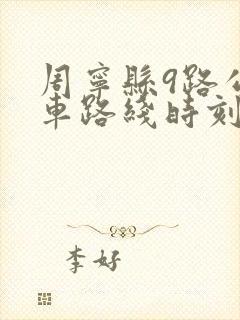 周寧縣9路公
車路綫時刻
李好